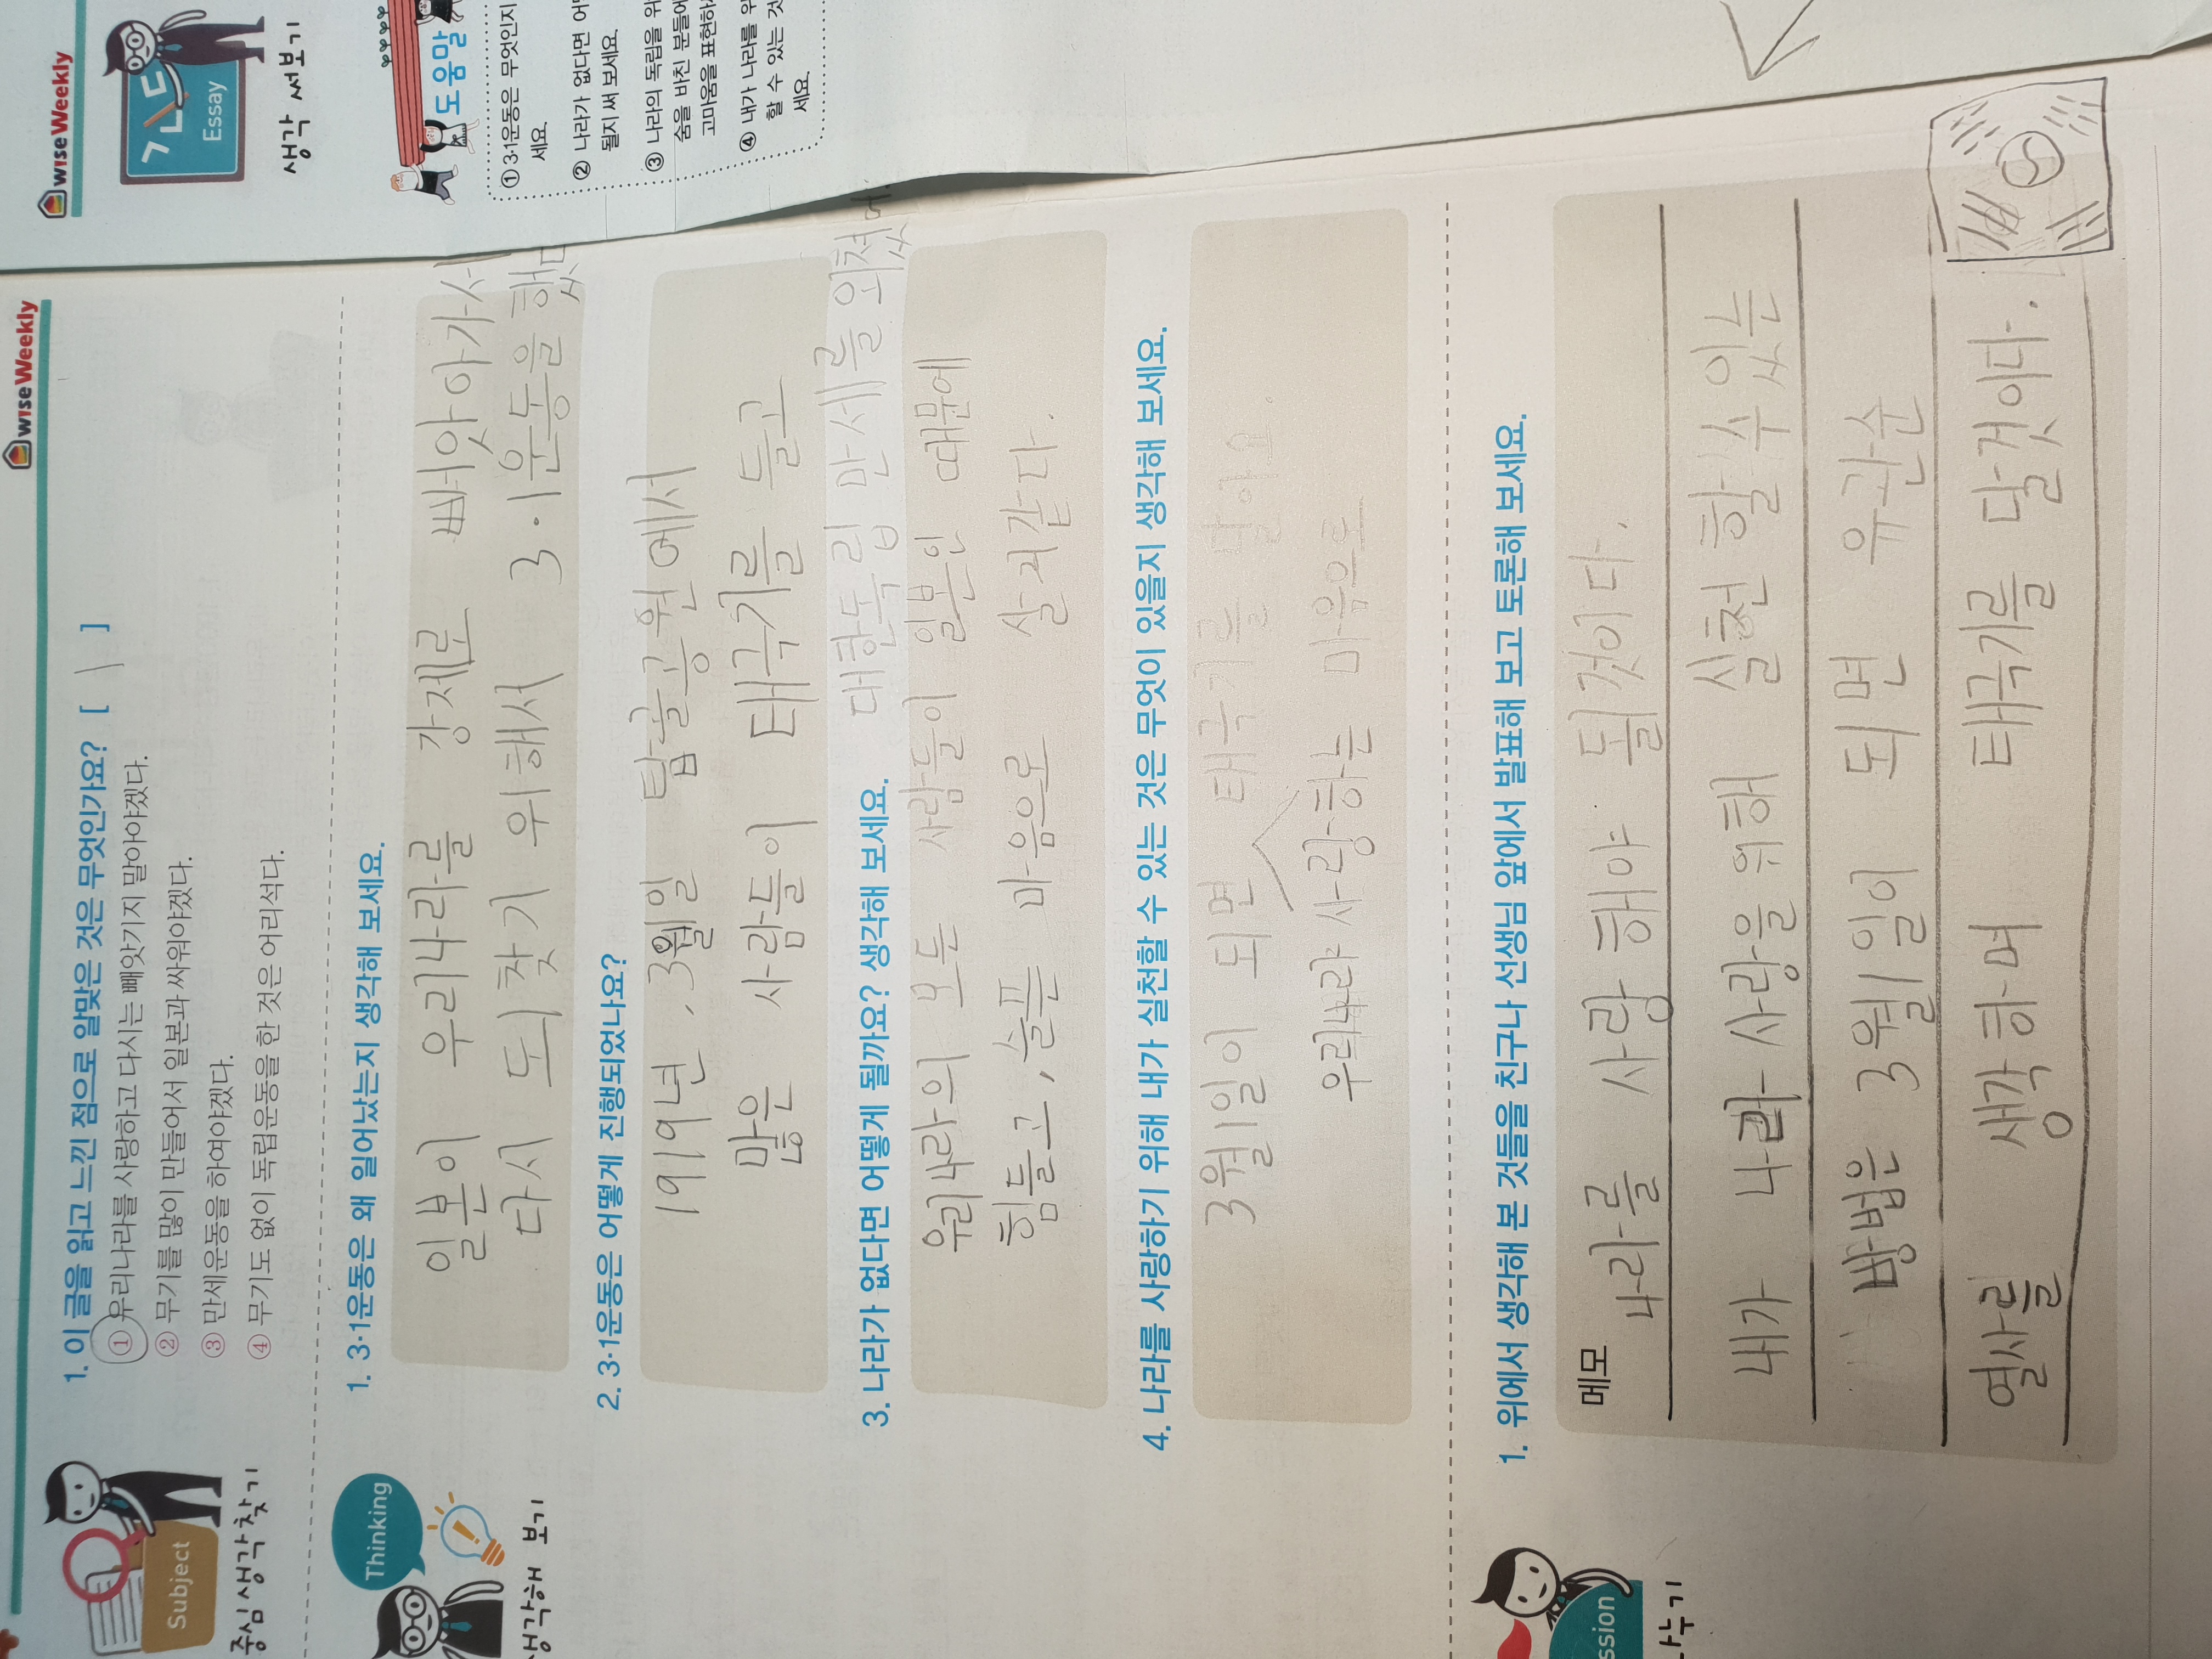 wise Weekly
Subject
중심 생각 찾기
1. 이 글을 읽고 느낀 점으로 알맞은 것은 무엇인가요? [ 1 ]
① 우리나라를 사랑하고 다시는 빼앗기지 말아야겠다.
② 무기를 많이 만들어서 일본과 싸워야겠다.
③ 만세운동을 하여야겠다.
④ 무기도 없이 독립운동을 한 것은 어리석다.
Thinking
생각해 보기
1. 3·1운동은 왜 일어났는지 생각해 보세요.
일본이 우리나라를 강제로 빼앗아가서
다시 되찾기 위해서 3·1운동을 했다
2. 3·1운동은 어떻게 진행되었나요?
1919년, 3월1일 탑골공원에서
많은 사람들이 태극기를 들고
대한독립 만세를 외쳤
3. 나라가 없다면 어떻게 될까요? 생각해 보세요.
우리나라의 모든 사람들이 일본인 때문에
힘들고, 슬픈 마음으로 살거같다.
4. 나라를 사랑하기 위해 내가 실천할 수 있는 것은 무엇이 있을지 생각해 보세요.
3월1일이 되면 태극기를 달아요.
우리나라 사랑하는 마음으로
ssion
나누기
1. 위에서 생각해 본 것들을 친구나 선생님 앞에서 발표해 보고 토론해 보세요.
메모
나라를 사랑 해야 될 것이다.
내가 나라 사랑을 위해 실천 할 수 있는
방법은 3월1일이 되면 유관순
열사를 생각하며 태극기를 달 것이다.
wise Weekly
ㄱㄴㄷ
Essay
생각 써보기
도움말
① 3·1운동은 무엇인지
세요.
② 나라가 없다면 어
될지 써 보세요.
③ 나라의 독립을 위
숨을 바친 분들에
고마움을 표현하
④ 내가 나라를 위
할 수 있는 것
세요.